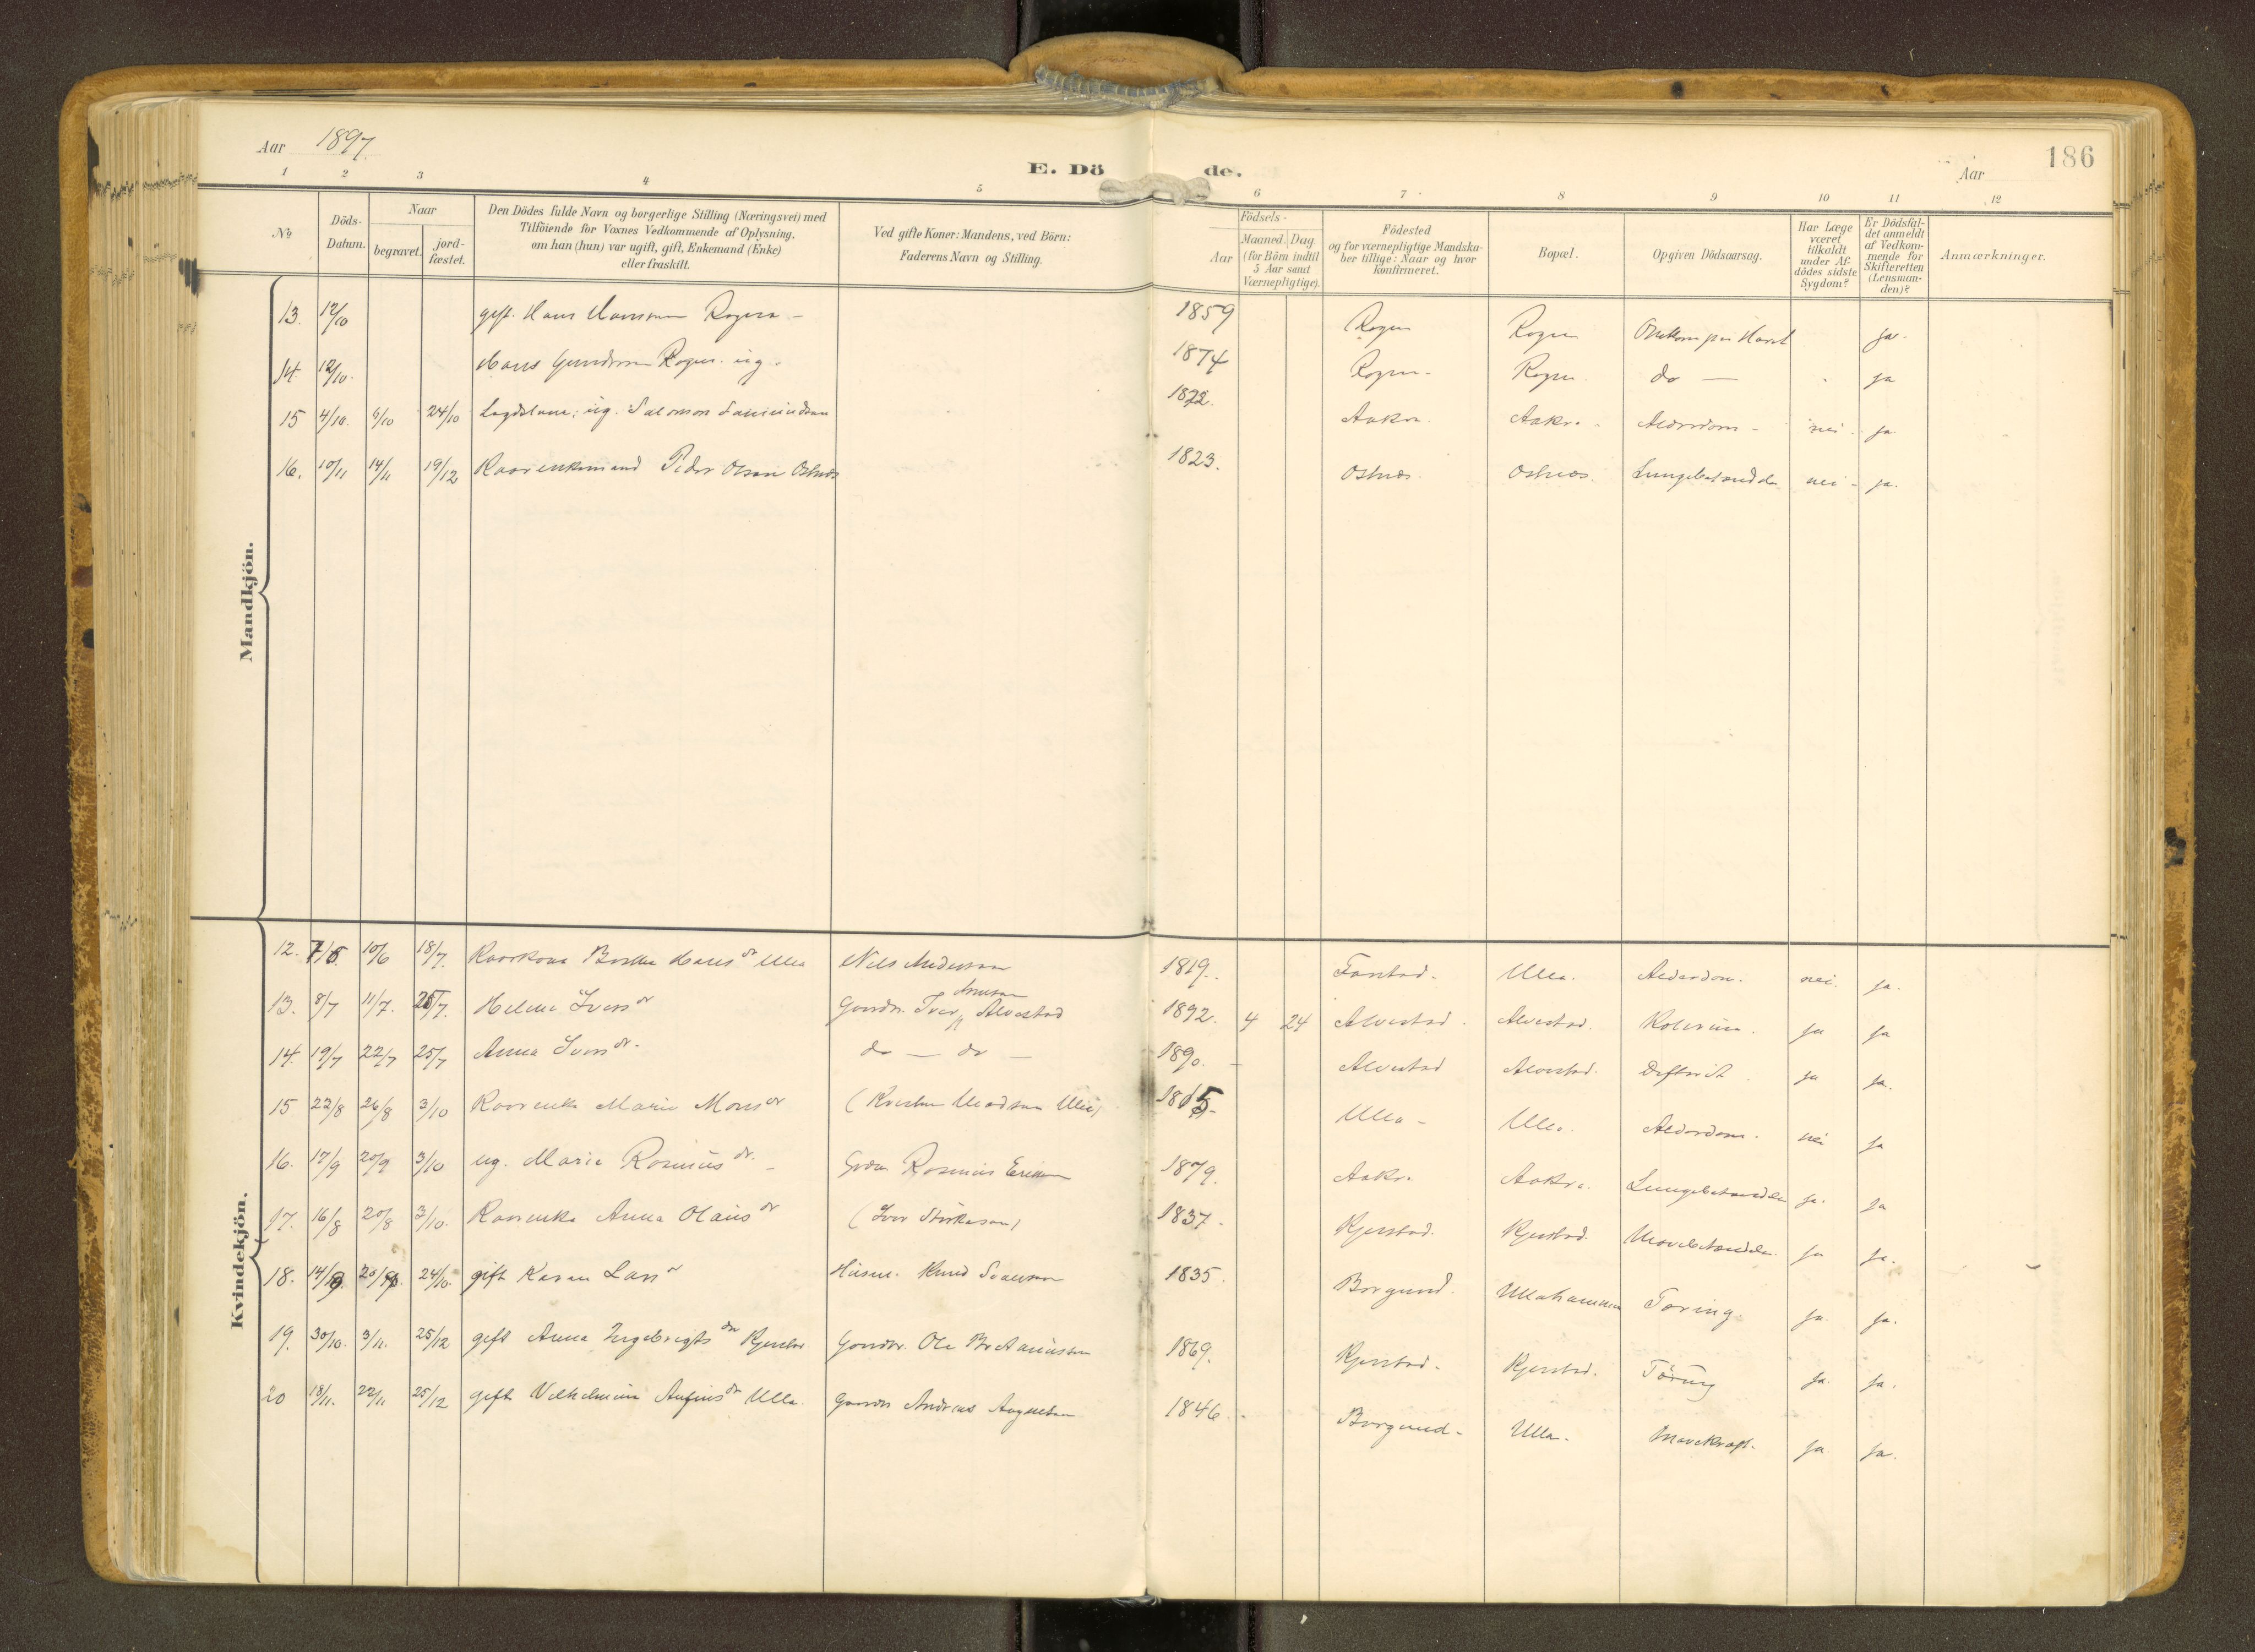 Aar 1897.
E. Dö de.
Aar
186
1 2 3 4 5 6 7 8 9 10 11 12
No
Döds-
Datum.
Naar
begravet.
jord-
fæstet.
Den Dödes fulde Navn og borgerlige Stilling (Næringsvei) med
Tilföiende for Voxnes Vedkommende af Oplysning,
om han (hun) var ugift, gift, Enkemand (Enke)
eller fraskilt.
Ved gifte Koner: Mandens, ved Börn:
Faderens Navn og Stilling.
Födsels-
Aar
Maaned. Dag
(for Börn indtil
5 Aar samt
Værnepligtige).
Födested
og for værnepligtige Mandska-
ber tillige: Naar og hvor
konfirmeret.
Bopæl.
Opgiven Dödsaarsag.
Har Læge
været
tilkaldt
under Af-
dödes sidste
Sygdom?
Er Dödsfal-
det anmeldt
af Vedkom-
mende for
Skifteretten
(Lensman-
den)?
Anmærkninger.
Mandkjön.
13. 12/10 gift. Hans Hansen 1859 Rogne Rogne Omkom paa Havet ja.
14. 12/10. Hans Rogne. ug. 1874 Rogne. Rogne do — ja
15 4/10. 6/10 24/10 ug. Salomon 1822. Aakre. Aakre. Alderdom - nei. ja.
16. 10/11 14/11 19/12 Kaarenkemand Peder Olsen Ostnes 1823. Ostnes. Ostnes. Lungebetændelse nei - ja.
Kvindekjön.
12. 7/6. 10/6 18/7. Kaarkone Hans dr Ulla Nils Andersen 1819. Farstad. Ulla. Alderdom. nei. ja.
13. 8/7 11/7. 25/7. Helene Ivers dr Gaardm. Iver Alvestad 1892. 4 24 Alvestad. Alvestad. Kolerine. ja ja
14. 19/7 22/7 25/7 Anna Ivers dr. do — do — 1890. Alvestad Alvestad. Difterit ja ja.
15 22/8 26/8 3/10 Kaarenke Marie Mons dr 1815. Ulla - Ulla. Alderdom. nei ja
16. 17/9 20/9 3/10 ug. Marie Rasmus dr. Rasmus Eriksen 1879. Aakre Aakre. Lungebetændelse ja. ja
17. 16/8 20/8 3/10. Kaarenke Anna Olaus dr (Iver 1837. Kjerstad. Kjerstad. Mavebetændelse. ja ja.
18. 14/9 20/9. 24/10. gift Karen Lars dr Husm. Knud 1835. Borgund. Ullahammen Tæring. ja. ja.
19. 30/10. 3/11. 25/12 gift Anna Ingebrigts dr Kjerstad Gaardbr. Ole 1869. Kjerstad. Kjerstad. Tæring ja. ja.
20 18/11. 22/11 25/12 gift Vilhelmine dr Ulla. Gaardbr Andreas 1846. Borgund. Ulla. Mavekræft. ja. ja.